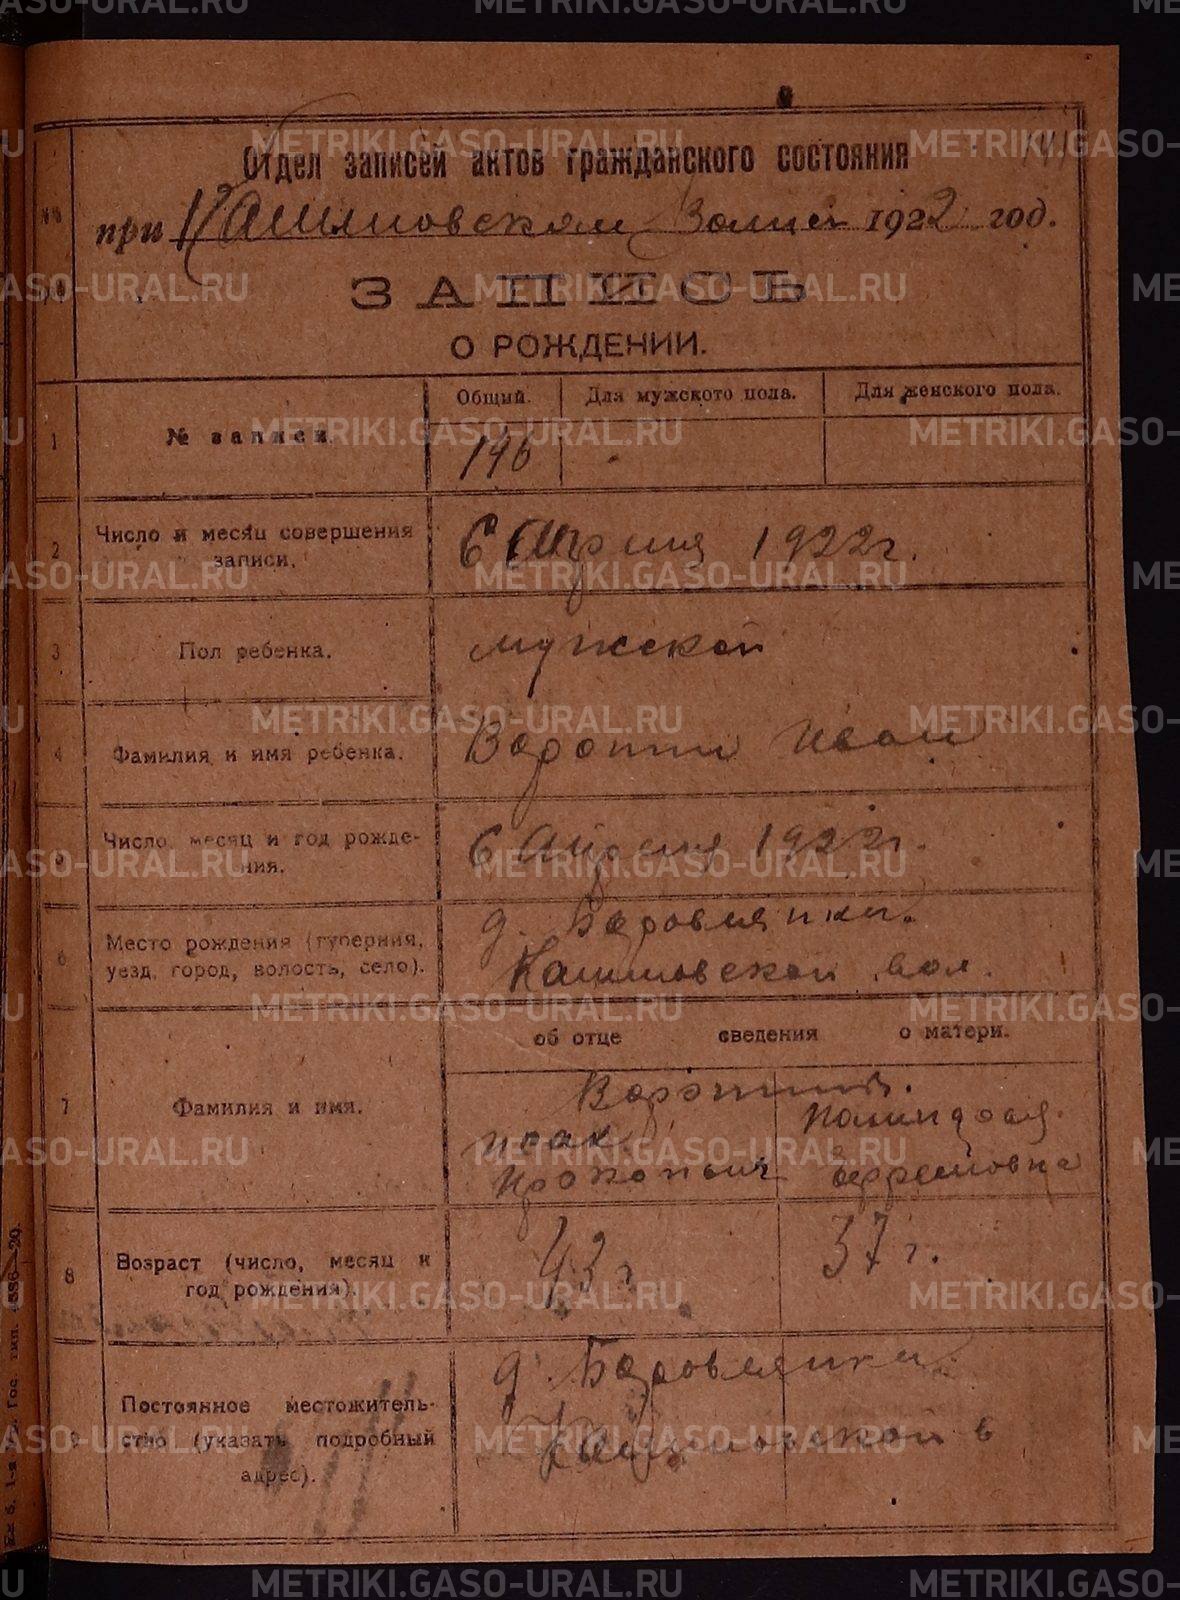 Отдел записей актов гражданского состояния
при Кашиновском Волисп 1922 год.
ЗАПИСЬ
О РОЖДЕНИИ.
Общий. Для мужского пола. Для женского пола.
1 № записи. 146
2 Число и месяц совершения
записи.
6 Апреля 1922 г.
3 Пол ребенка. мужской
4 Фамилия и имя ребенка. Воротни Иван
5 Число, месяц и год рожде-
ния.
6 Апреля 1922 г.
6 Место рождения (губерния,
уезд, город, волость, село).
д. Боровлянки.
Кашиновской вол.
об отце сведения о матери.
7 Фамилия и имя.
Исак
Прокопьич
Ефремовна
8 Возраст (число, месяц и
год рождения).
43 г 37 г.
9 Постоянное местожитель-
ство (указать подробный
адрес).
д. Боровлянки
Кашиновской в
METRIKI.GASO-URAL.RU